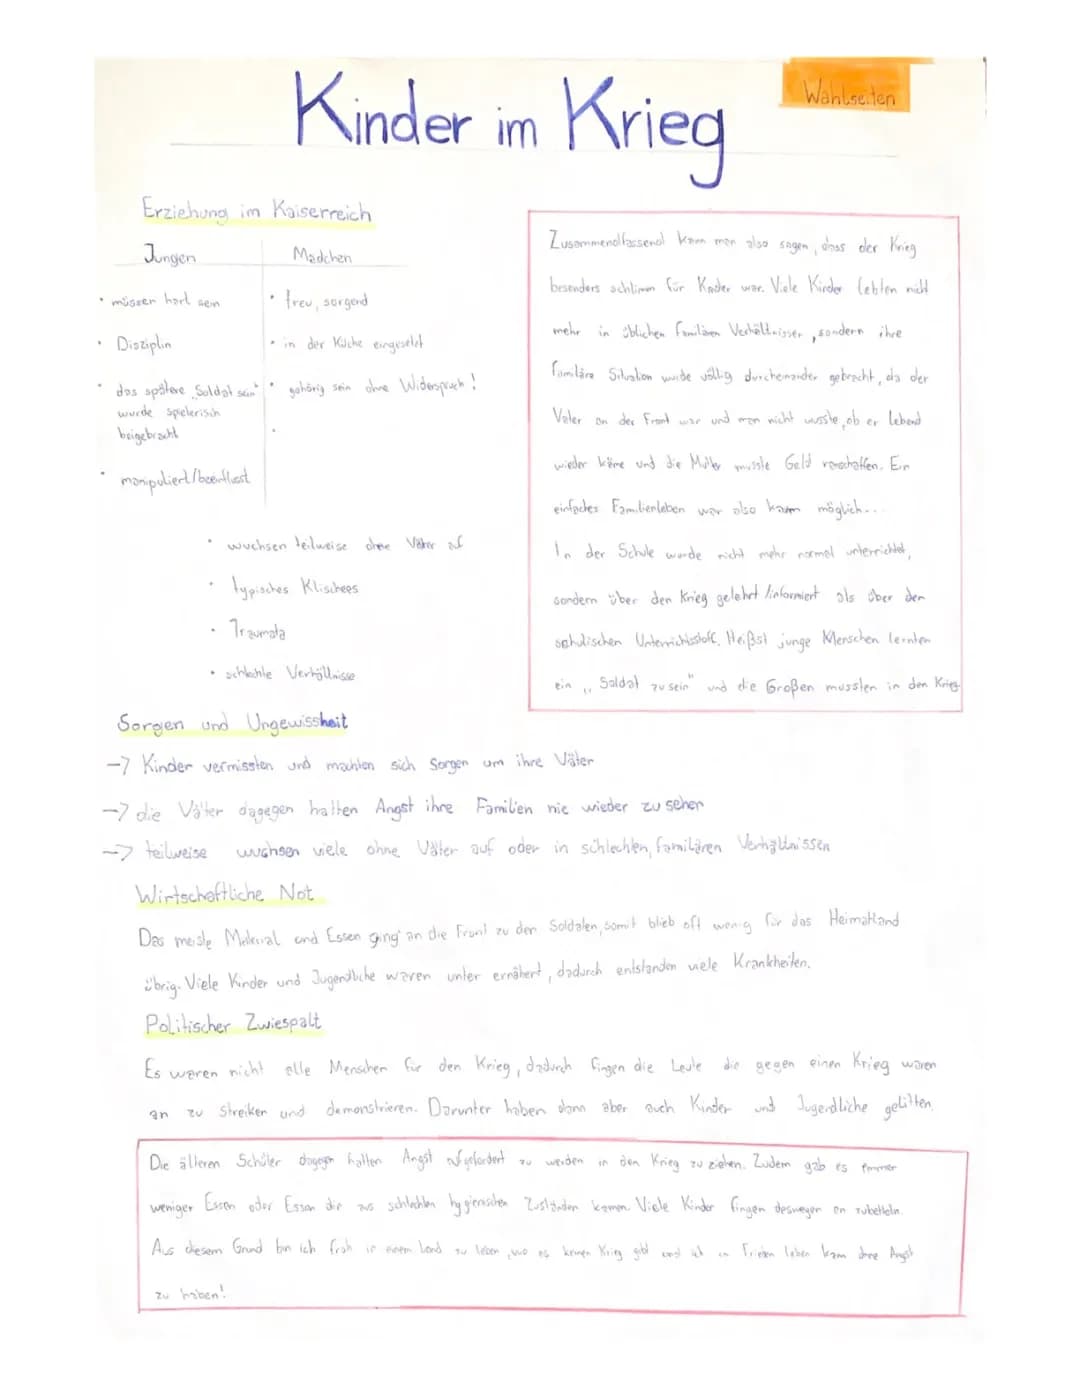 Wahlseiten
Kinder im Krieg
Erziehung im Kaiserreich
Jungen
Mädchen
• müssen hart sein
• Disziplin
• das spätere „Soldat sein"
wurde spielerisch
beigebracht
• manipuliert/beeinflusst
• treu, sorgend
• in der Küche eingesetzt
• gehörig sein ohne Widerspruch!
•
• wuchsen teilweise ohne Väter auf
• typisches Klischees
• Traumata
• schlechte Verhältnisse
Zusammendfassend kann man also sagen, dass der Krieg
besonders schlimm für Kinder war. Viele Kinder lebten nicht
mehr in üblichen familären Verhältnisser, sondern ihre
familäre Situation wurde völlig durcheinander gebracht, da der
Vater an der Front war und man nicht wusste, ob er lebend
wieder käme und die Mutter musste Geld verschaffen. Ein
einfaches Familienleben war also kaum möglich...
In der Schule wurde nicht mehr normal unterrichtet,
sondern über den Krieg gelehrt/informiert als über den
schulischen Unterrichtsstoff. Heißst junge Menschen lernten
ein „Soldat zu sein" und die Großen mussten in den Krieg
Sorgen und Ungewissheit
-> Kinder vermissten und machten sich Sorgen um ihre Väter
-> die Väter dagegen hatten Angst ihre Familien nie wieder zu sehen
-> teilweise wuchsen viele ohne Väter auf oder in schlechten, familären Verhältnissen
Wirtschaftliche Not
Das meiste Material und Essen ging an die Front zu den Soldaten, somit blieb oft wenig für das Heimatland
übrig. Viele Kinder und Jugendliche waren unter ernährt, dadurch entstanden viele Krankheiten.
Politischer Zwiespalt
Es waren nicht alle Menschen für den Krieg, dadurch fingen die Leute die gegen einen Krieg waren
an zu streiken und demonstrieren. Darunter haben dann aber auch Kinder und Jugendliche gelitten
Die älteren Schüler dagegen hatten Angst aufgefordert zu werden in den Krieg zu ziehen. Zudem gab es immer
weniger Essen oder Essen die aus schlechten hygienischen Zuständen kamen. Viele Kinder fingen deswegen an zubetteln.
Aus diesem Grund bin ich froh in einem Land zu leben, wo es keinen Krieg gibt und ich in Frieden leben kann ohne Angst
zu haben!